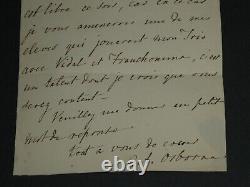 est libre ce soir, cas ça ce cas
je vous amenerais une de mes
eleves qui jouerait mon Trio
avec Vidal et Franchomme, c'est
un talent dont je crois que vous
serez content.
Veuillez me donner un petit
mot de reponse
Tout à vous de coeur
G. Osborne